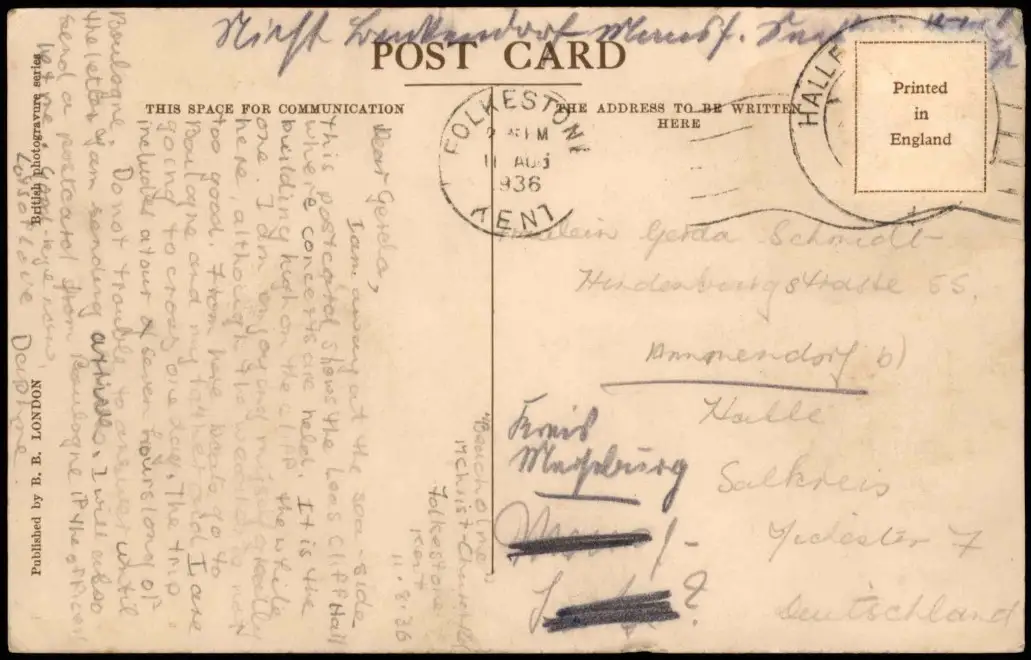 Nicht Benkendorf Mansf.
POST CARD
THIS SPACE FOR COMMUNICATION
THE ADDRESS TO BE WRITTEN
HERE
Printed
in
England
FOLKESTONE
11 AUG
1936
KENT
HALLE
"Beacholme"
Folkestone
Kent
11.8.36
Dear Gerda,
I am away at the sea-side
this postcard shows the Leas Cliff Hall
where concerts are held. It is the
building high on the cliff the white
one. I am enjoying myself really
here, although the weather is not
too good. From here boats go to
Boulogne and my father and I are
going to cross one day. The trip
includes a tour of seven hours long of
Boulogne. Do not trouble to answer until
the letter I am sending arrives. I will also
send a postcard from Boulogne if the officer
let me. Good-bye now,
Lots of love Daphne
Fräulein Gerda Schmidt
Hindenburgstrasse 55.
Ammendorf b)
Halle
Kreis
Merseburg
Salkreis
7
Deutschland
British photogravure series
Published by B. B. LONDON